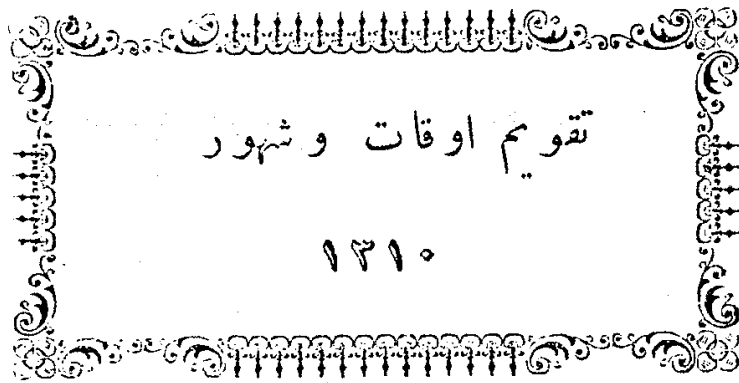 تقويم اوقات و شهور
١٣١٠